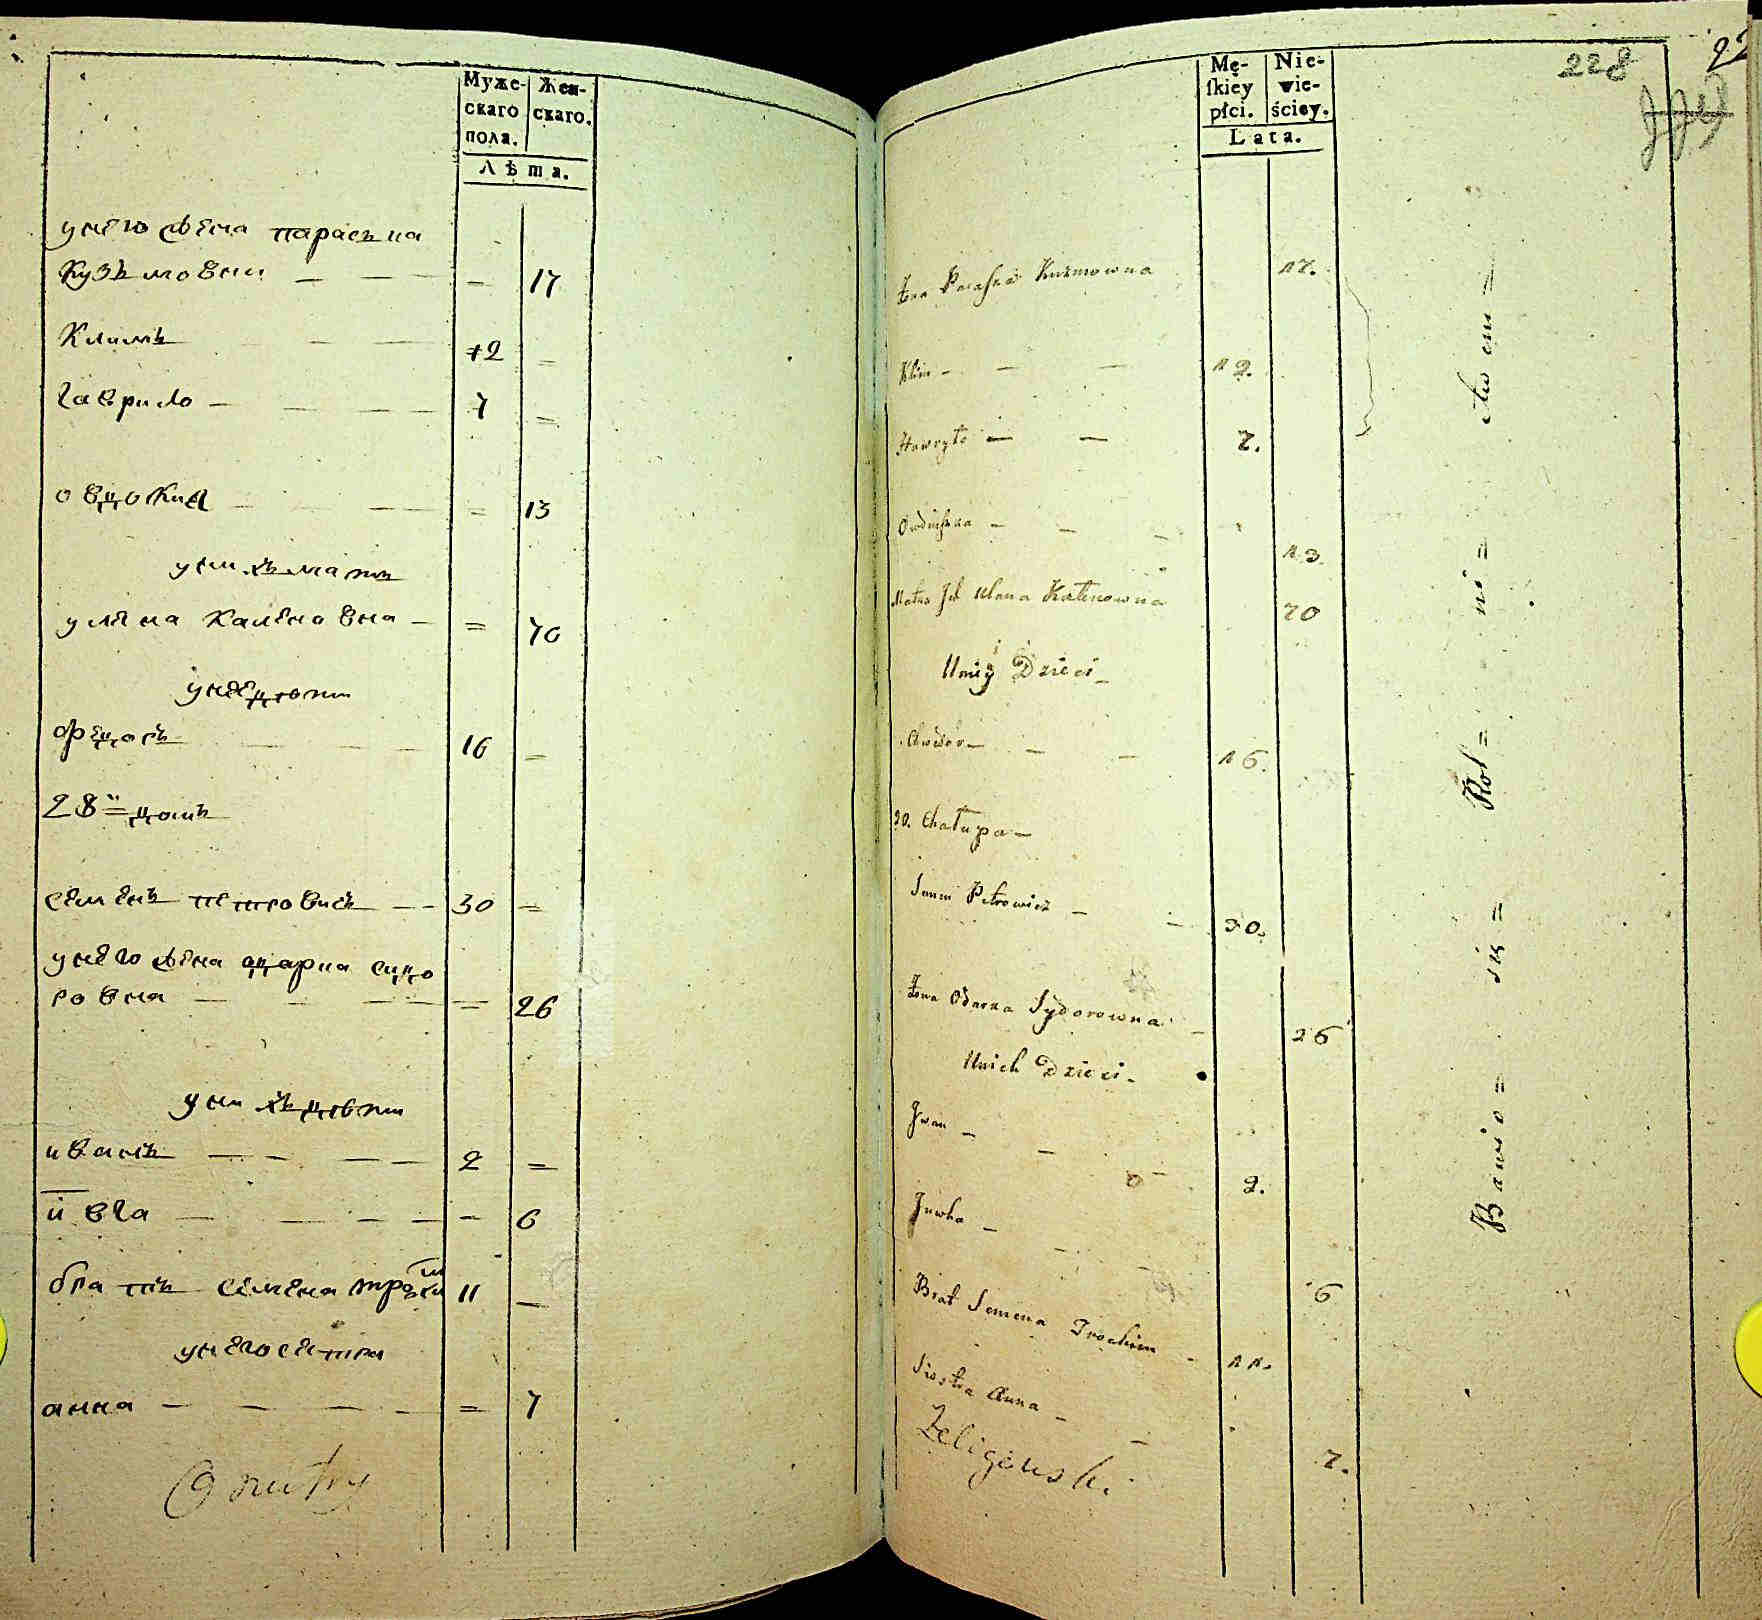 Муже-
скаго
пола.
Жен-
скаго.
Лѣта.
у него жена параска
Кузмовни — — — — 17
Климъ — — 12 =
гаврило — — — 7 =
овдокия — — — = 13
у них мать
уляна калѣновна — = 70
у нее дѣти
федосъ — — — 16 =
28й домъ
семенъ петровичъ — — 30 =
у него жена одарка сидо
ровна — — — — 26
у них дѣти
иванъ — — — — 2 =
ивга — — — — — 6
братъ семена трохим 11 —
у него сестра
анна — — — — = 7
Dmitry
Mę-
ſkiey
płci.
Nie-
wie-
ściey.
Lata.
228
Żona Paraſka Kuzmowna 17.
Klim — — — 12.
Hawryło — — 7.
Owduſzka — — — 13
Matka Ich Ulana Kalenowna 70
U niey Dzieci —
— — 16.
30. Chałupa —
Semen Petrowicz — — 30.
Żona Odarka Sydorowna — 26
U nich Dzieci —
Iwan — — — 2.
Juwha — — — 6
Brat Semena Trochim — 11.
Siostra Anna — — 7.
Zeligowski
Bawio = się = Rol = ni = ctwem =